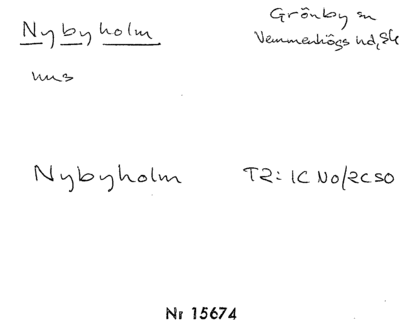 Nybyholm
Grönby sn
Vemmenhögs hd, Sk
Nybyholm
T2: 1C NO/2C SO
Nr 15674